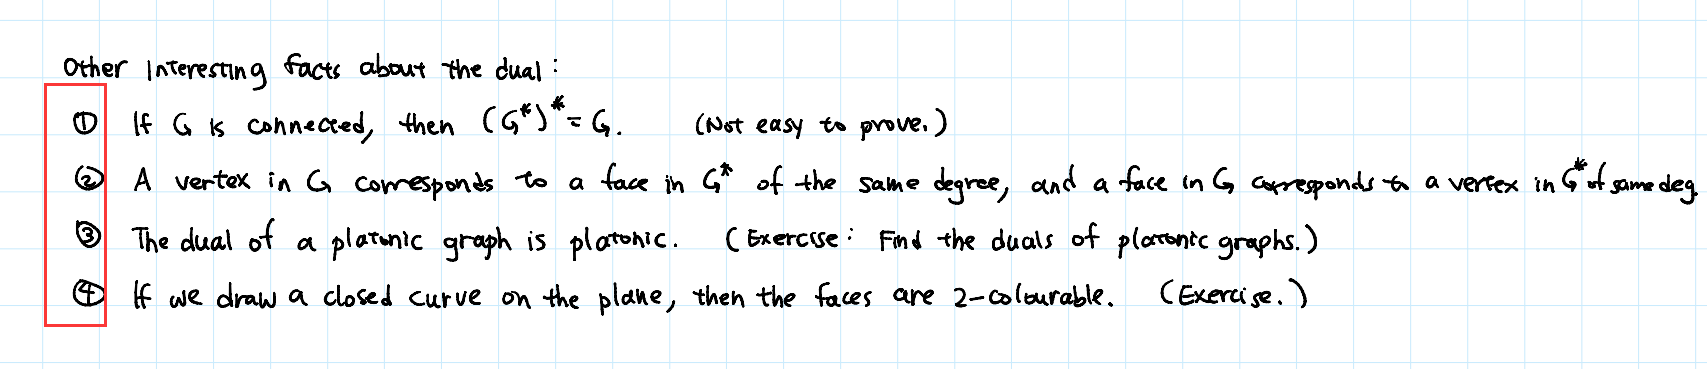 Other interesting facts about the dual:
① If G is connected, then (G*)* = G. (Not easy to prove.)
② A vertex in G corresponds to a face in G* of the same degree, and a face in G corresponds to a vertex in G* of same deg.
③ The dual of a platonic graph is platonic. (Exercise: Find the duals of platonic graphs.)
④ If we draw a closed curve on the plane, then the faces are 2-colourable. (Exercise.)